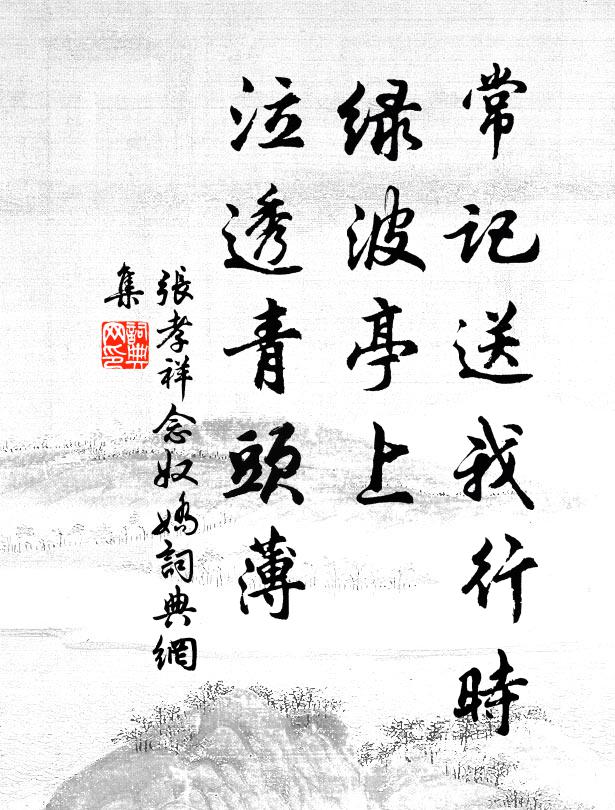 常記送我行時
緑波亭上
泣透青頭薄
張孝祥念奴嬌詞典網
集
詞典
网印